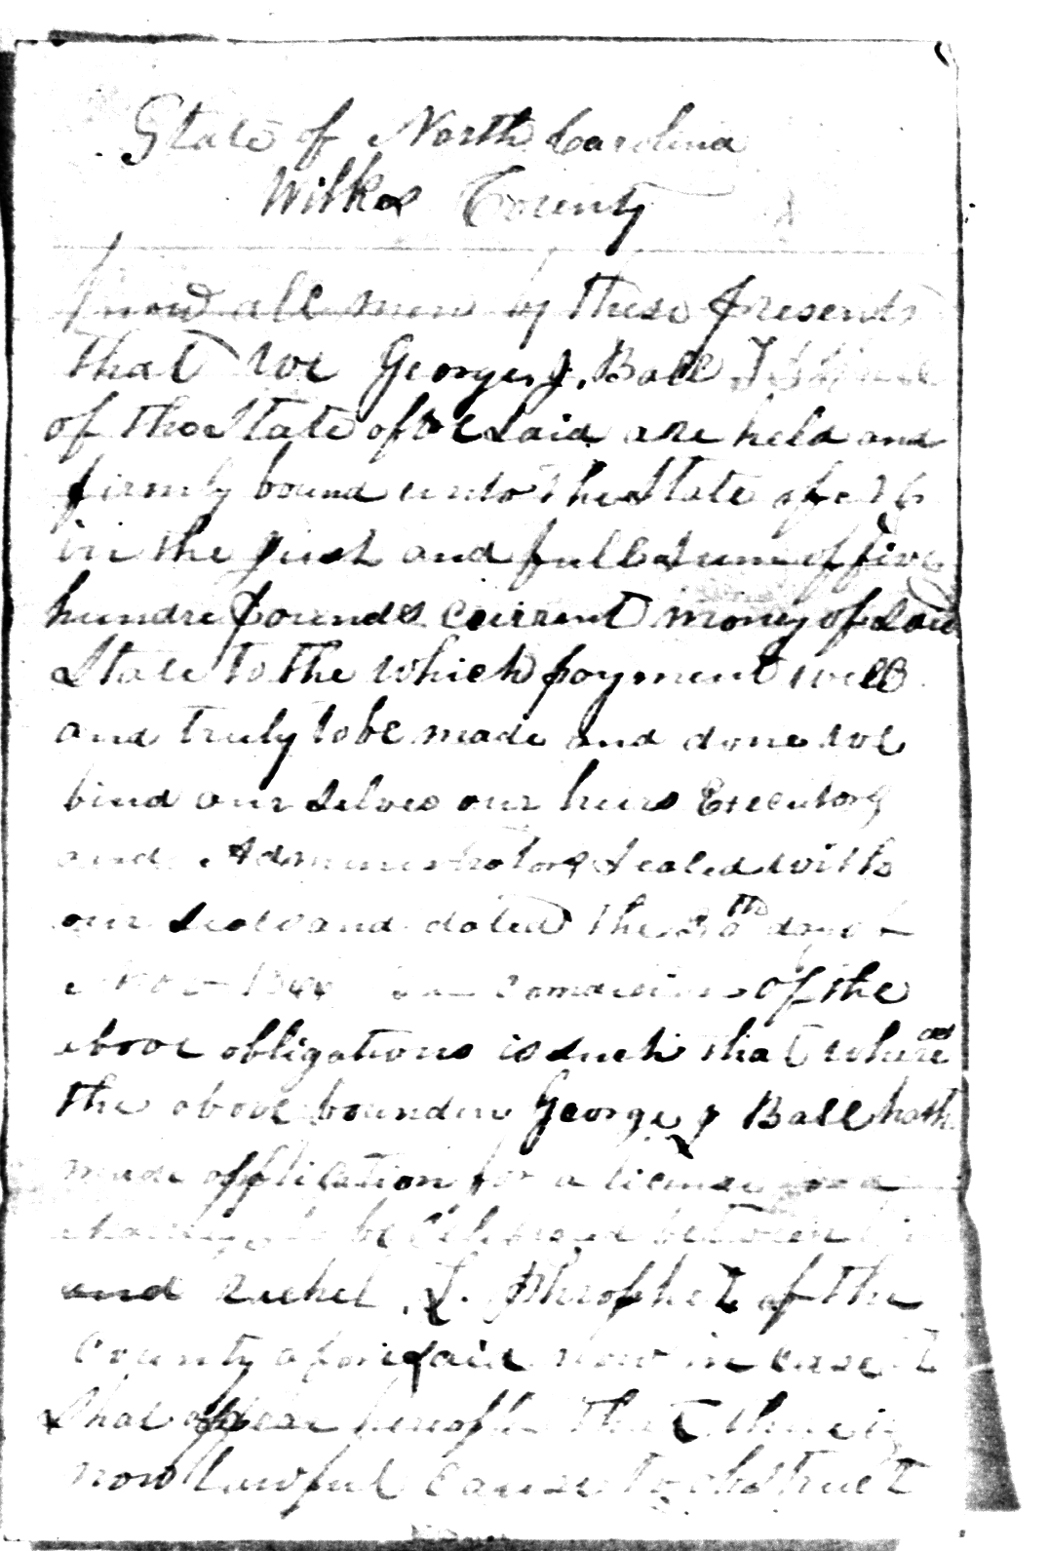 State of North Carolina
Wilkes County
Know all men by these presents
that we George J. Ball
of the State of said are held and
firmly bound unto the State of N C
in the just and full sum of five
hundre pounds current money of said
State to the which payment well
and truly to be made and done we
bind our selves our heirs Executors
and Administrators sealed with
our seals and dated the 30th day of
Nov 1844 the condision of the
above obligations is such that whereas
the above bounden George J Ball hath
made application for a license for a
marriage to be between him
and Rachel L. Phrophet of the
County aforesaid now in case it
shal appear hereafter that there is
now lawful cause to obstruct